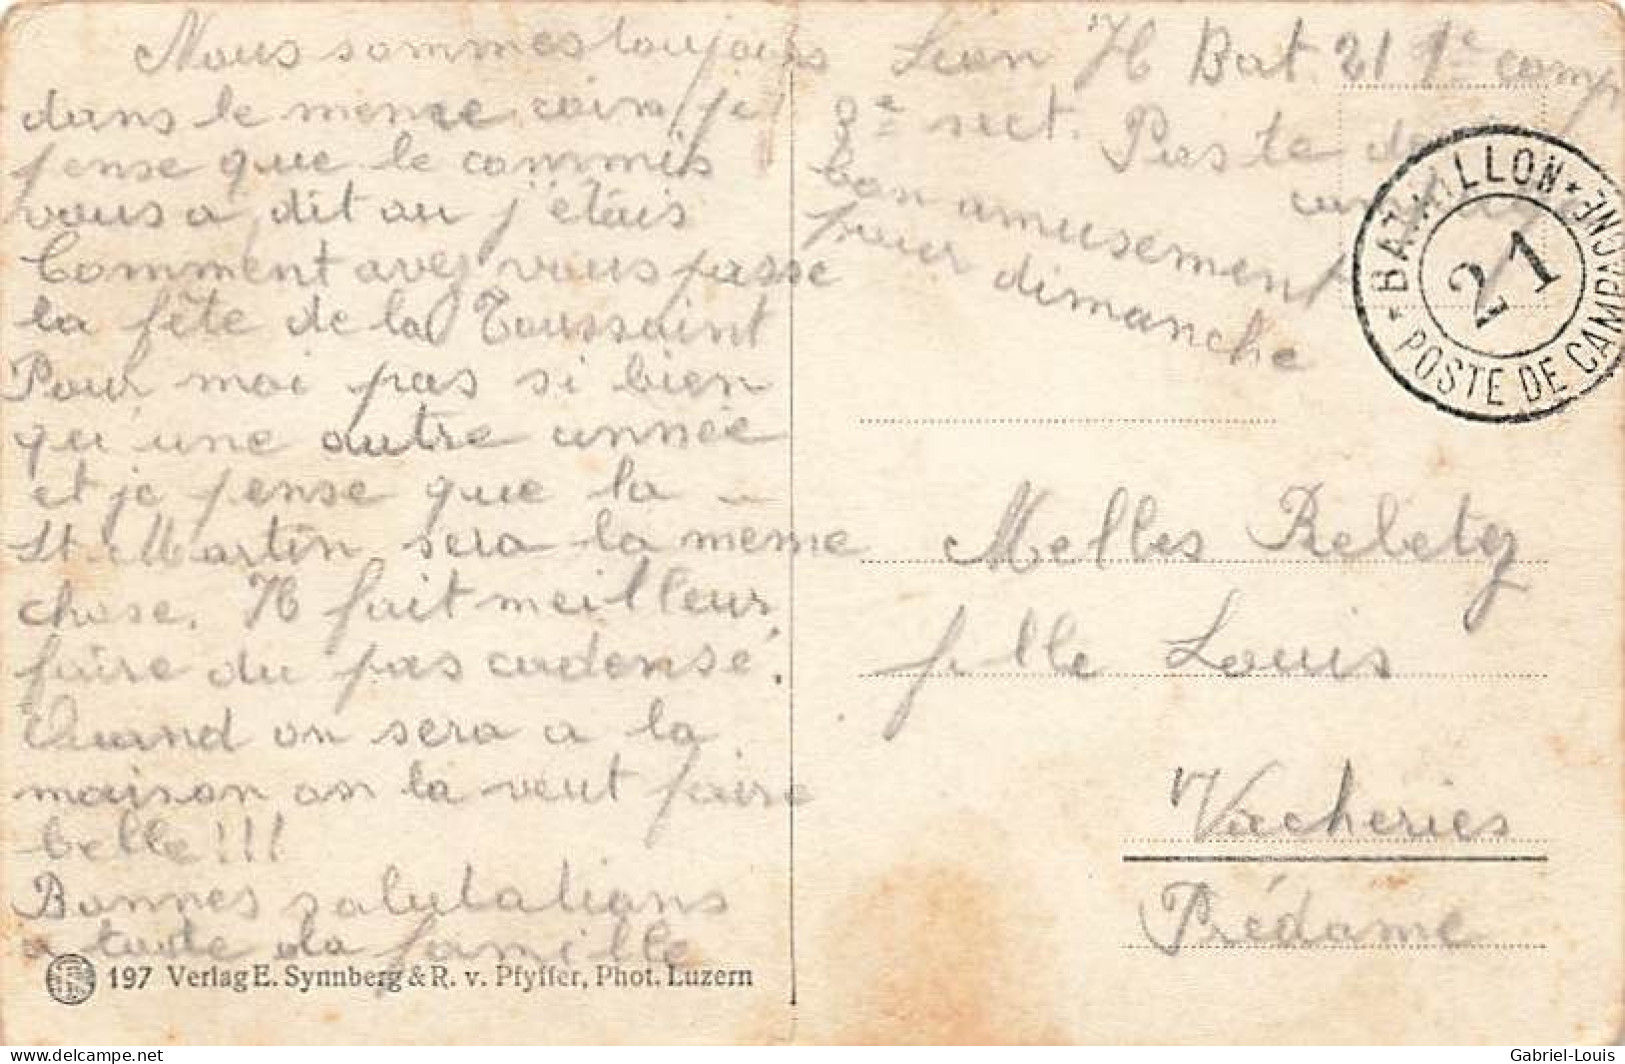 Nous sommes toujours
dans le meme coin je
pense que le commis
vous a dit ou j'étais
Comment avez vous passe
la fête de la Toussaint
Pour moi pas si bien
qu'une autre année
et je pense que la
St. Martin sera la meme
chose. Il fait meilleur
faire du pas cadensé.
Quand on sera a la
maison on la veut faire
belle!!!
Bonnes salutations
a toute la famille
197 Verlag E. Synnberg & R. v. Pfyffer, Phot. Luzern
Léon H Bat. 21 1e comp
3e sect. Poste de
bon amusement
pour dimanche
BATAILLON * POSTE DE CAMPAGNE *
21
Melles Rebetez
fille Louis
Vacheries
Prédame
delcampe.net
Gabriel-Louis